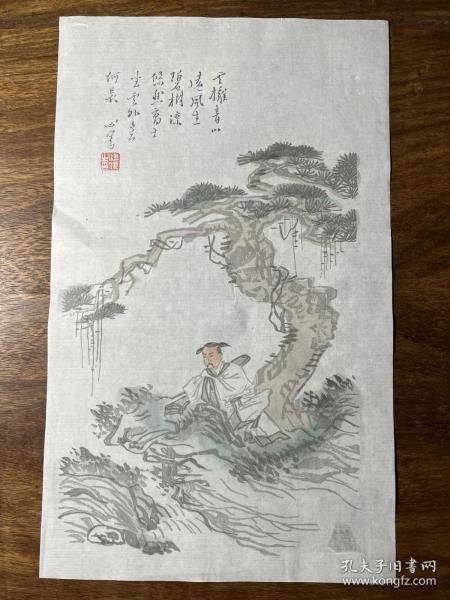 云擁青山
清風生
碧樹涼
悠然高士
坐雲外意
何長 心畬
孔夫子旧书网
www.kongfz.com